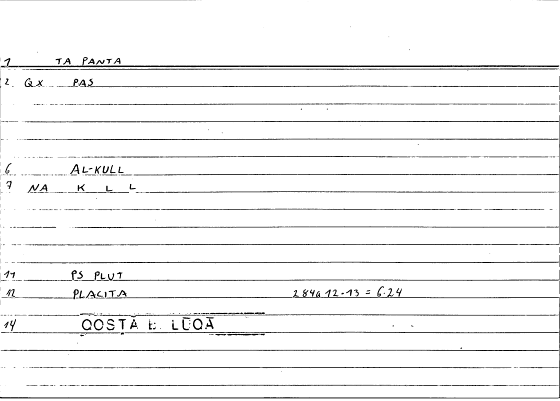 1 TA PANTA
2 QX PAS
6 AL-KULL
7 NA K L L
11 PS PLUT
12 PLACITA 284a 12-13 = 6.24
14 QOSTĀ b. LŪQĀ